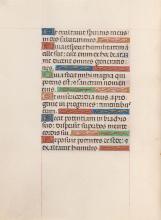 Et exultavit spiritus meus
in deo salutari meo
Quia respexit humilitatem a
ecce enim ex hoc beatam
dicent omnes generationes
Quia fecit mihi magna qui
potens est et sanctum nomen
eius
Et misericordia eius a pro
genie in progenies timentibus
eum
Fecit potentiam in brachio
suo dispersit superbos mente
cordis sui
Deposuit potentes de sede et
exaltavit humiles